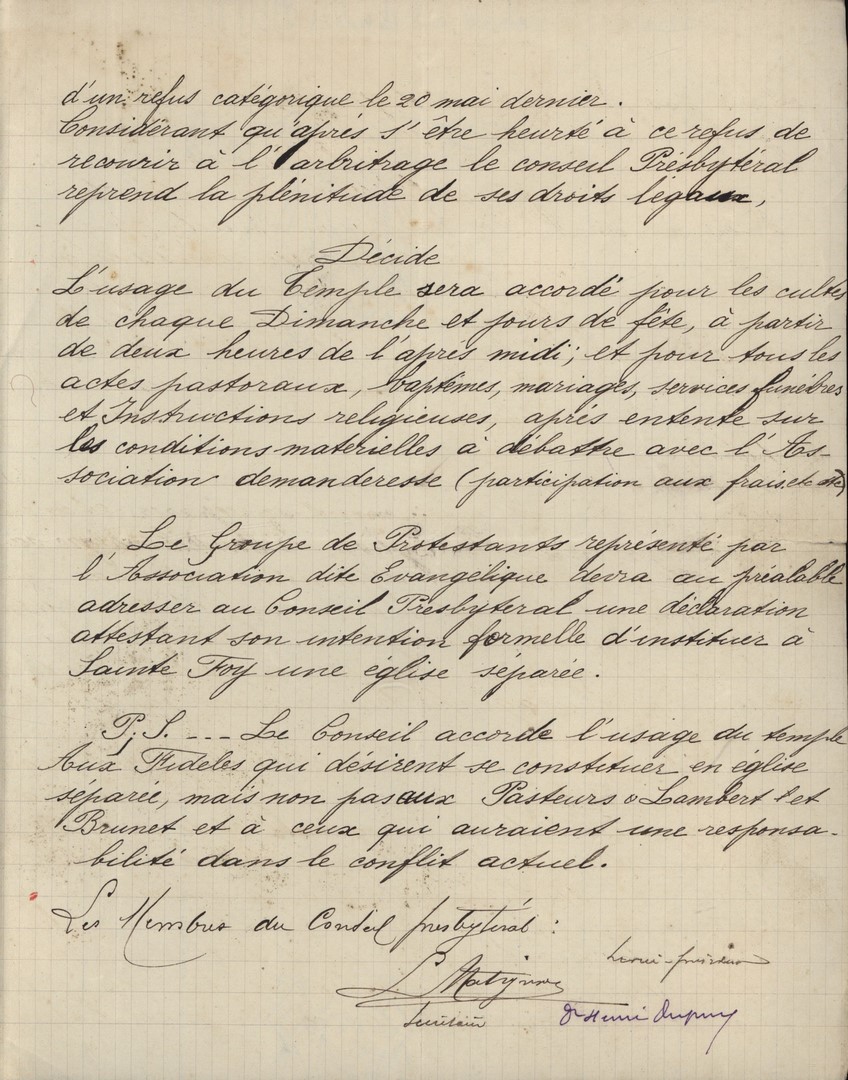 d'un refus catégorique le 20 mai dernier.
Considérant qu'après s'être heurté à ce refus de
recourir à l'arbitrage le conseil Présbytéral
reprend la plénitude de ses droits légaux,
Décide
L'usage du Temple sera accordé pour les cultes
de chaque Dimanche et jours de fête, à partir
de deux heures de l'après midi; et pour tous les
actes pastoraux, baptêmes, mariages, services funèbres
et Instructions religieuses, après entente sur
les conditions materielles à débattre avec l'As-
sociation demanderesse (participation aux frais, etc)
Le Groupe de Protestants représenté par
l'Association dite Evangélique devra au préalable
adresser au Conseil Presbyteral une déclaration
attestant son intention formelle d'instituer à
Sainte Foy une église séparée.
P.S. --- Le Conseil accorde l'usage du temple
Aux Fideles qui désirent se constituer en église
séparée, mais non pas aux Pasteurs Lambert et
Brunet et à ceux qui auraient une responsa-
bilité dans le conflit actuel.
Les Membres du Conseil presbytéral :
Secrétaire
Dr Henri Dupuy